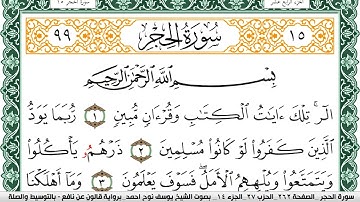 سورة الحجر ١٥
الجزء الرابع عشر
٩٩ سُورَةُ الحِجْرِ ١٥
بِسْمِ اللَّهِ الرَّحْمَٰنِ الرَّحِيمِ
الٓرۚ تِلْكَ ءَايَٰتُ الْكِتَٰبِ وَقُرْءَانٍ مُّبِينٍ ١ رُّبَمَا يَوَدُّ
الَّذِينَ كَفَرُوا لَوْ كَانُوا مُسْلِمِينَ ٢ ذَرْهُمُۥ يَأْكُلُوا
وَيَتَمَتَّعُوا وَيُلْهِهِمُ الْأَمَلُۖ فَسَوْفَ يَعْلَمُونَ ٣ وَمَا أَهْلَكْنَا
سورة الحجر الصفحة ٢٦٢ الحزب ٢٧ الجزء ١٤ بصوت الشيخ يوسف نوح احمد برواية قالون عن نافع - بالتوسط والصلة